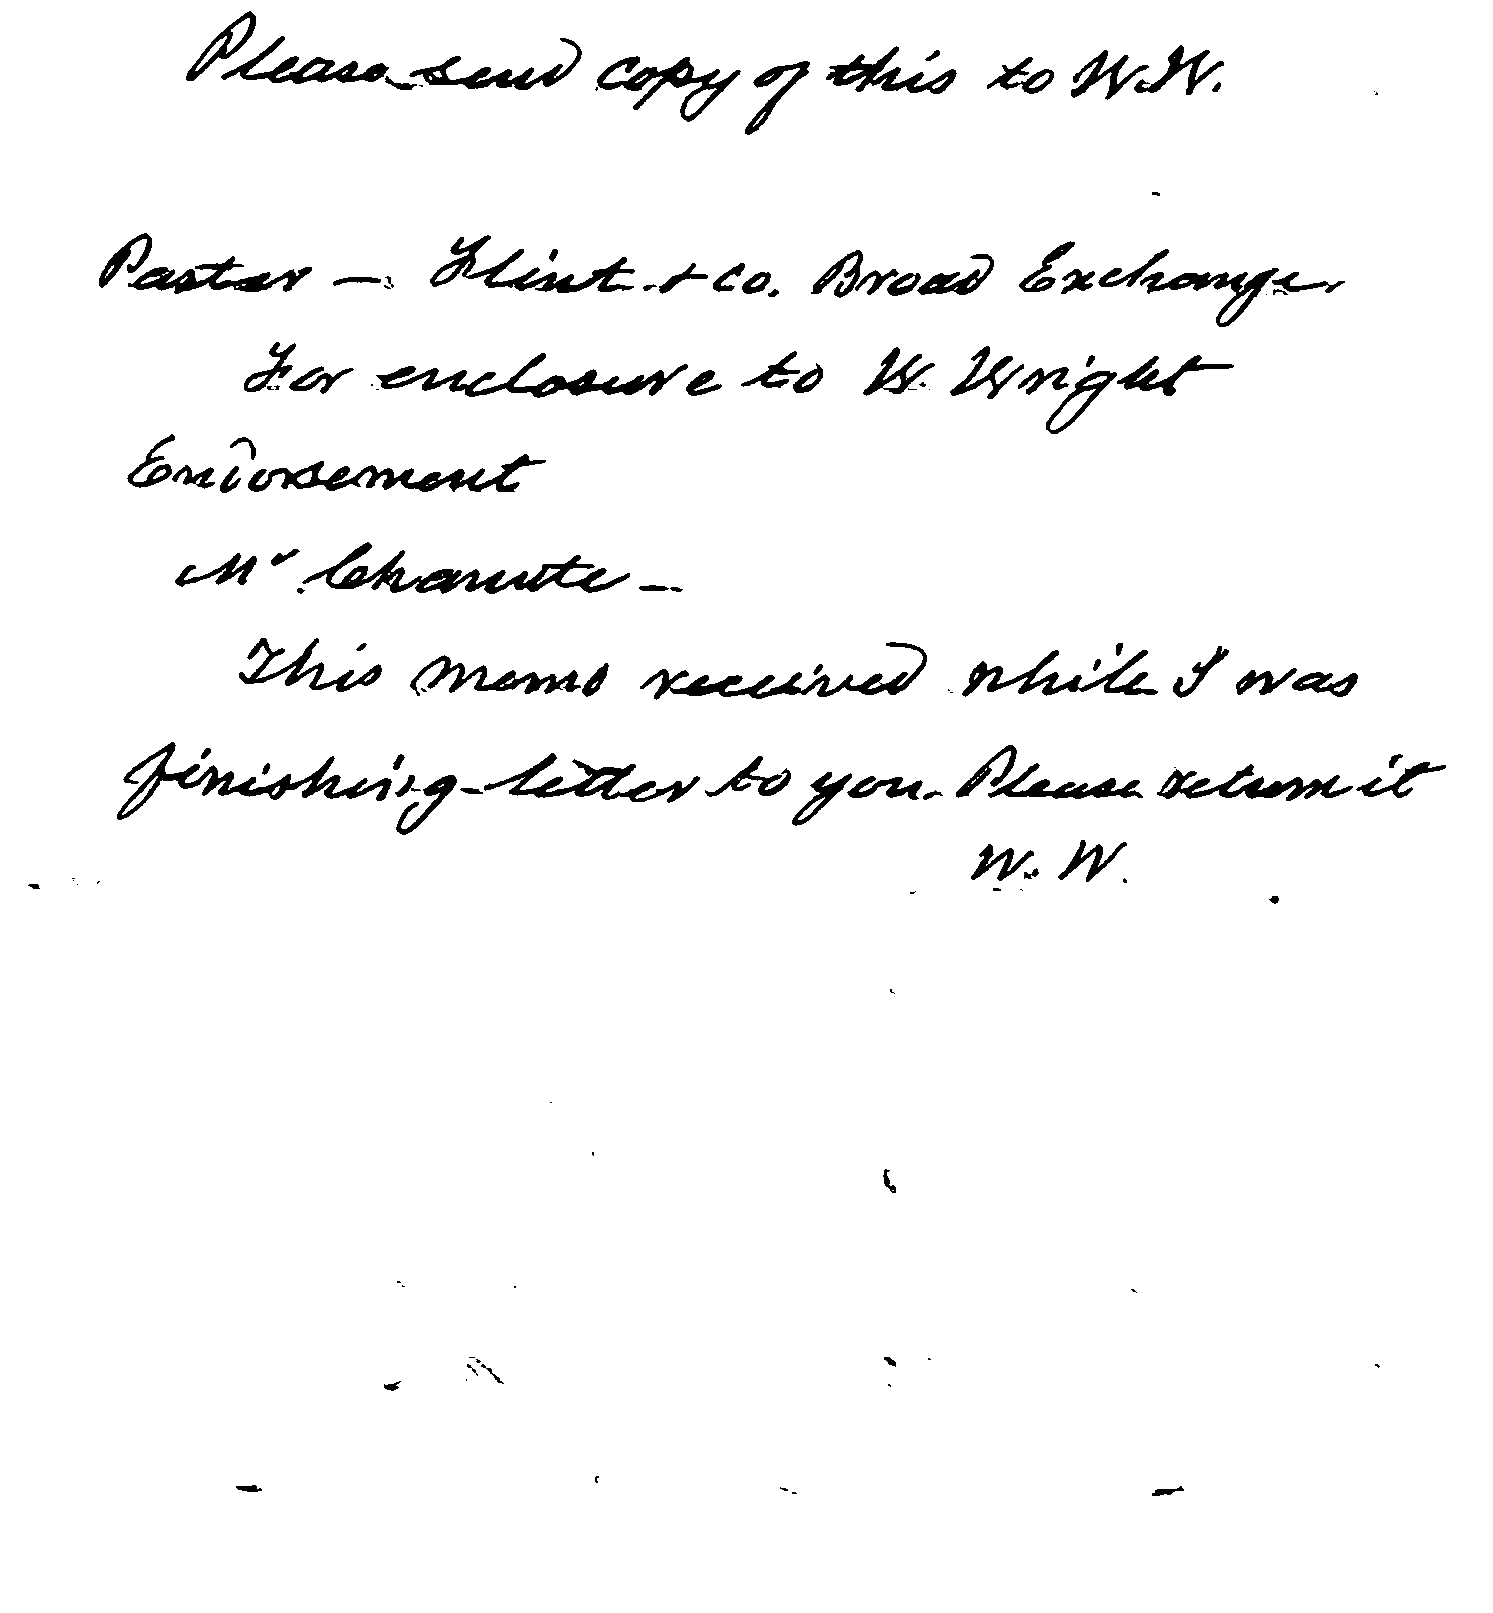 Please send copy of this to W.W.
Paster — Flint & Co. Broad Exchange.
For enclosure to W. Wright
Endorsement
Mr Chanute —
This memo received while I was
finishing letter to you. Please return it
W. W.